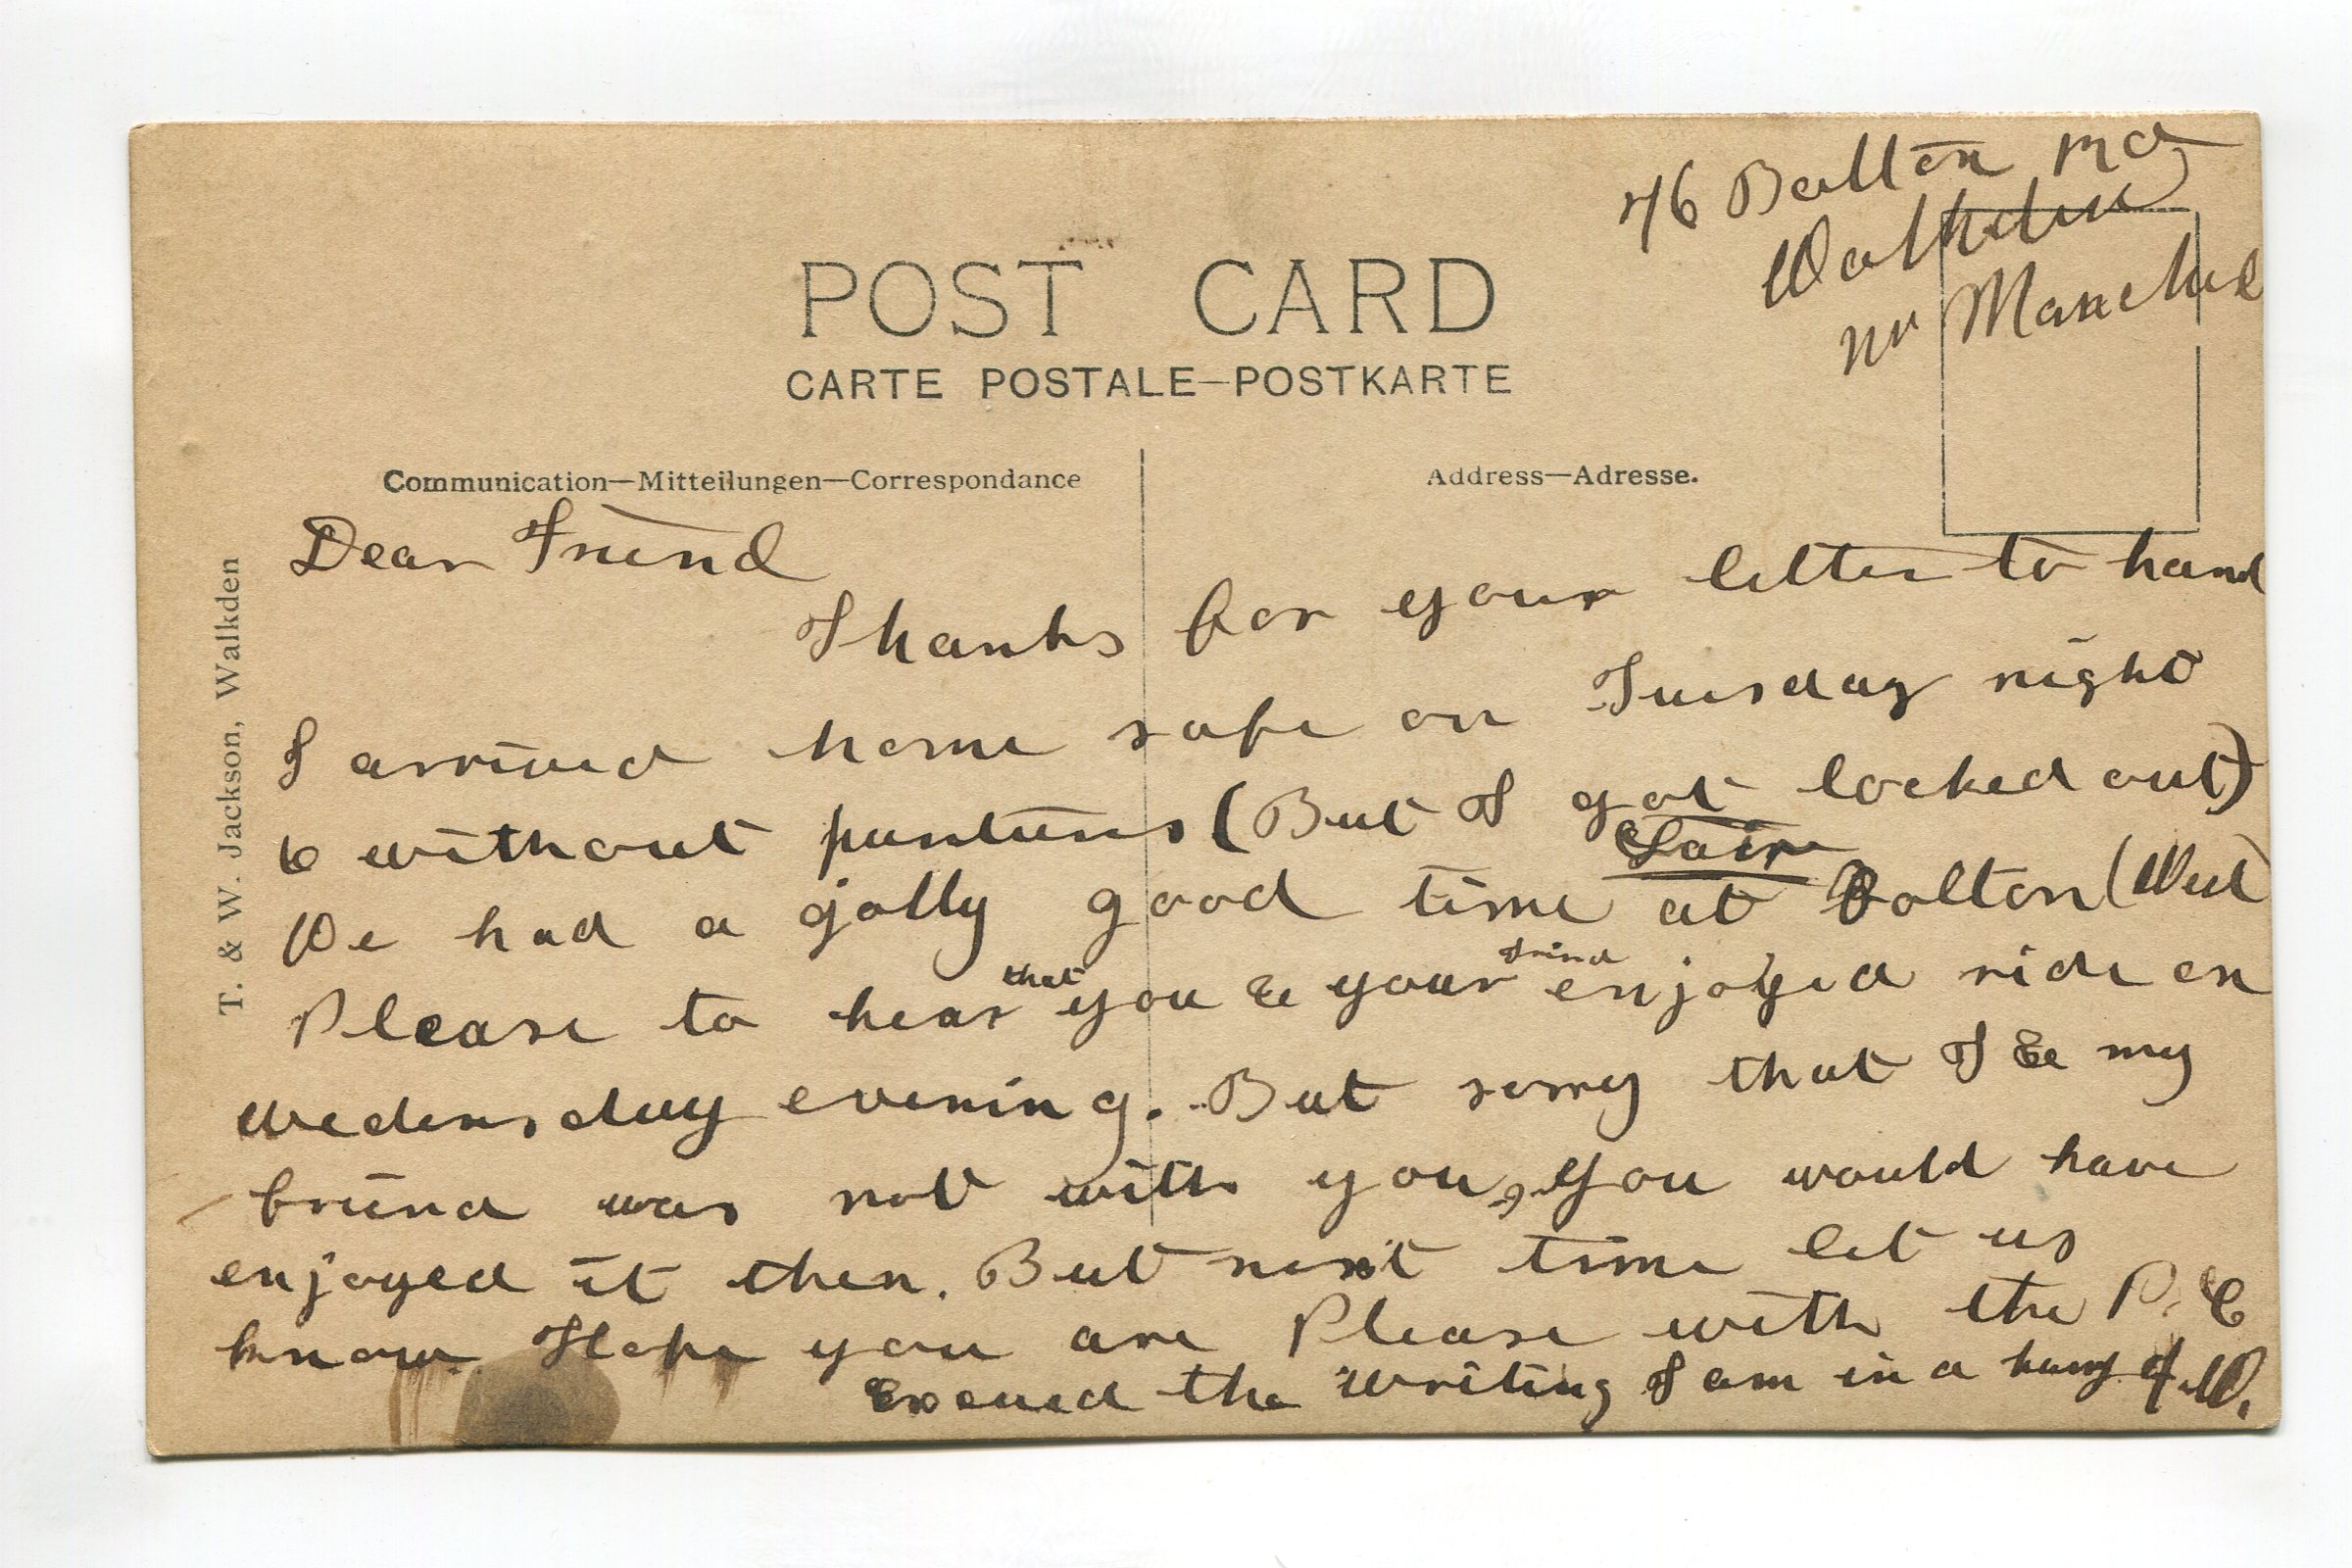 76 Bolton Rd
Walkden
nr Manchs
POST CARD
CARTE POSTALE—POSTKARTE
Communication—Mitteilungen—Correspondance
Address—Adresse.
T. & W. Jackson, Walkden
Dear Friend
Thanks for your letter to hand
I arrived home safe on Tuesday night
& without puntures (But I got locked out)
We had a jolly good time at Bolton (West
Please to hear that you & your frind enjoyed ride on
wedensday evening. But sorry that I & my
friend was not with you, you would have
enjoyed it then. But next time let us
know. Hope you are Please with the P.C
Excused the writing I am in a hurry